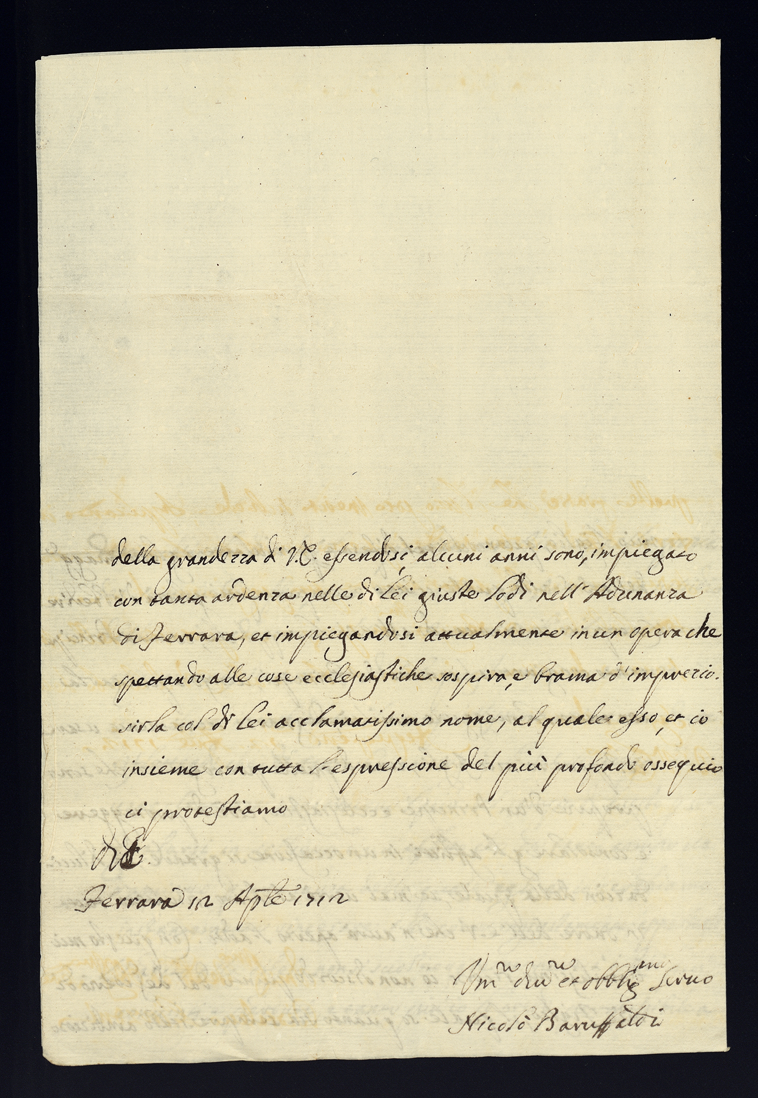 della grandezza di V.E. essendosi, alcuni anni sono, impiegato
con tanta ardenza nelle di Lei giuste Lodi nell'Adunanza
di Ferrara, et impiegandosi attualmente in un opera che
spettando alle cose ecclesiastiche sospira, e brama d'imprezio-
sirla col di Lei acclamatissimo nome, al quale esso, et io
insieme con tutta l'espressione del più profondo ossequio
ci protestiamo
Di V.E.
Ferrara 12 Aple 1712
Umo Devo et obbligmo Servo
Nicolò Baruffaldi